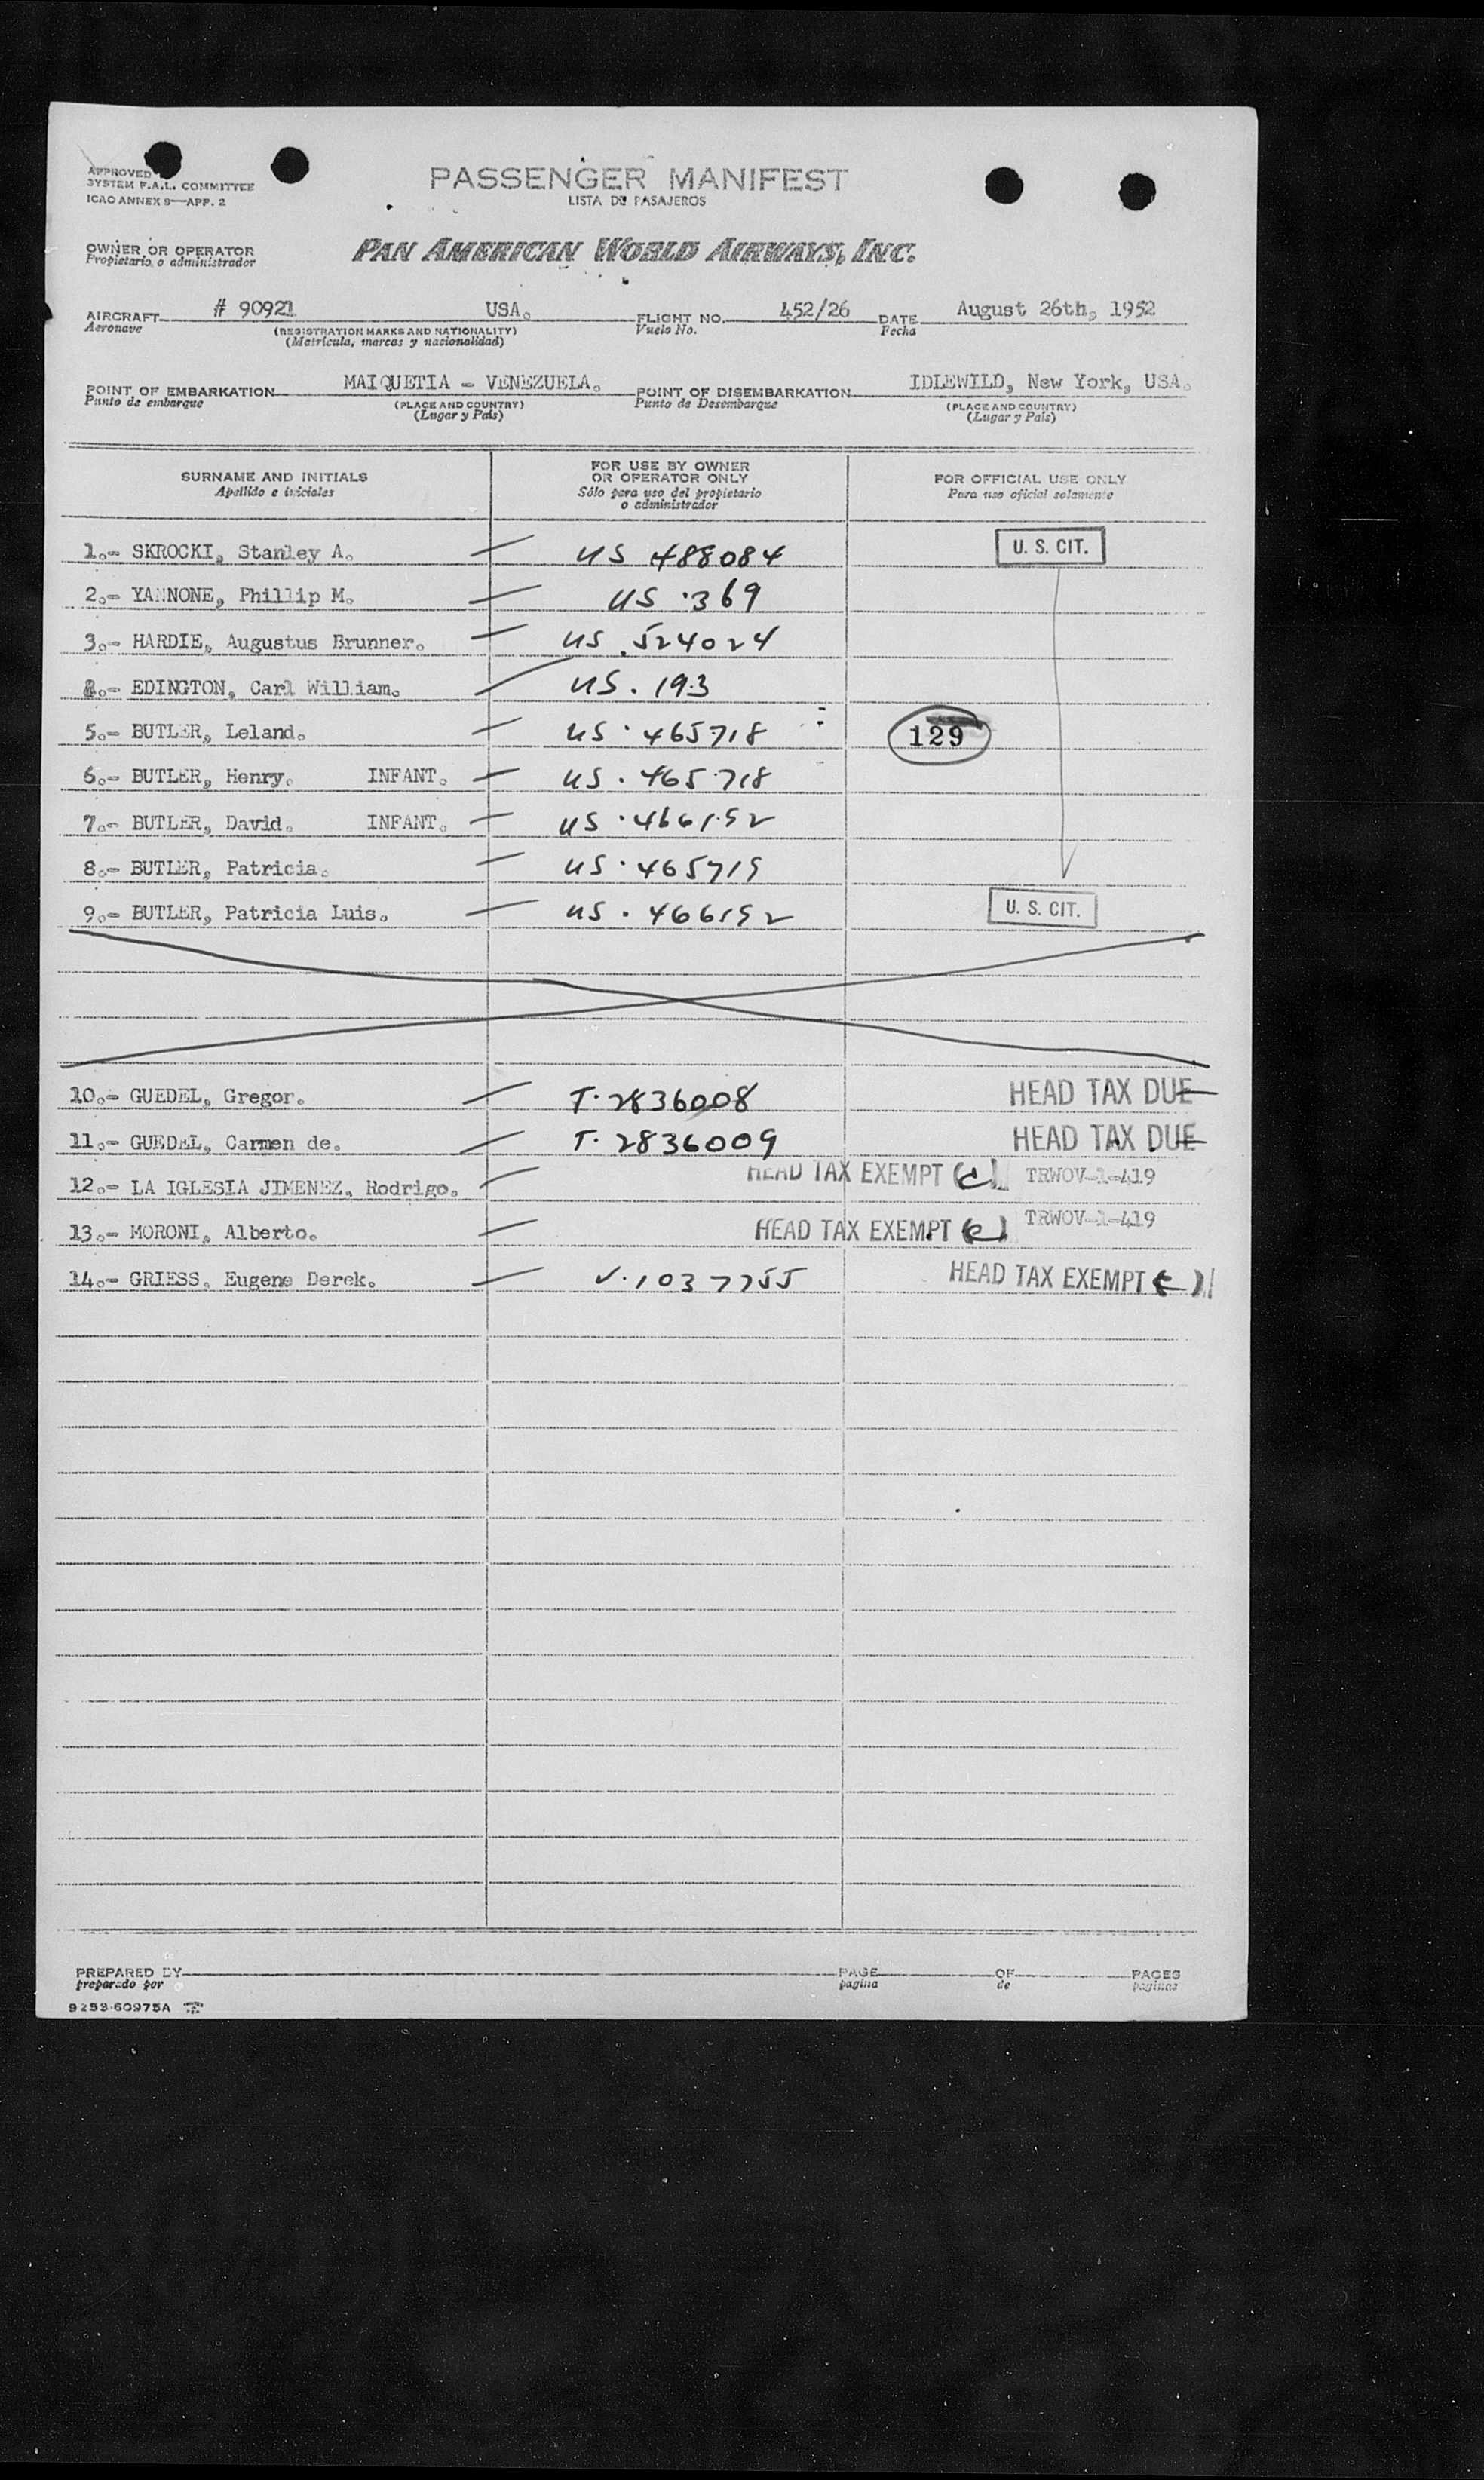 APPROVED
SYSTEM F.A.L. COMMITTEE
ICAO ANNEX 9—APP. 2
PASSENGER MANIFEST
LISTA DE PASAJEROS
OWNER OR OPERATOR
Propietario o administrador
PAN AMERICAN WORLD AIRWAYS, INC.
AIRCRAFT # 90921 USA. FLIGHT NO. 452/26 DATE August 26th, 1952
Aeronave (REGISTRATION MARKS AND NATIONALITY) Vuelo No. Fecha
(Matrícula, marcas y nacionalidad)
POINT OF EMBARKATION MAIQUETIA - VENEZUELA. POINT OF DISEMBARKATION IDLEWILD, New York, USA.
Punto de embarque (PLACE AND COUNTRY) Punto de Desembarque (PLACE AND COUNTRY)
(Lugar y País) (Lugar y País)
SURNAME AND INITIALS
Apellido e iniciales
FOR USE BY OWNER
OR OPERATOR ONLY
Sólo para uso del propietario
o administrador
FOR OFFICIAL USE ONLY
Para uso oficial solamente
1.- SKROCKI, Stanley A. US 488084 U. S. CIT.
2.- YANNONE, Phillip M. US .369
3.- HARDIE, Augustus Brunner. US .524024
.- EDINGTON, Carl William. US . 193
5.- BUTLER, Leland. US . 465718 129
6.- BUTLER, Henry. INFANT. US . 465718
7.- BUTLER, David. INFANT. US . 466192
8.- BUTLER, Patricia. US . 465719
9.- BUTLER, Patricia Luis. US . 466192 U. S. CIT.
10.- GUEDEL, Gregor. T. 2836008 HEAD TAX DUE
11.- GUEDEL, Carmen de. T. 2836009 HEAD TAX DUE
12.- LA IGLESIA JIMENEZ, Rodrigo. HEAD TAX EXEMPT ( ) TRWOV-1-419
13.- MORONI, Alberto. HEAD TAX EXEMPT ( ) TRWOV-1-419
14.- GRIESS, Eugene Derek. V. 1037755 HEAD TAX EXEMPT ( )
PREPARED BY PAGE OF PAGES
preparado por pagina de paginas
9253-60975A